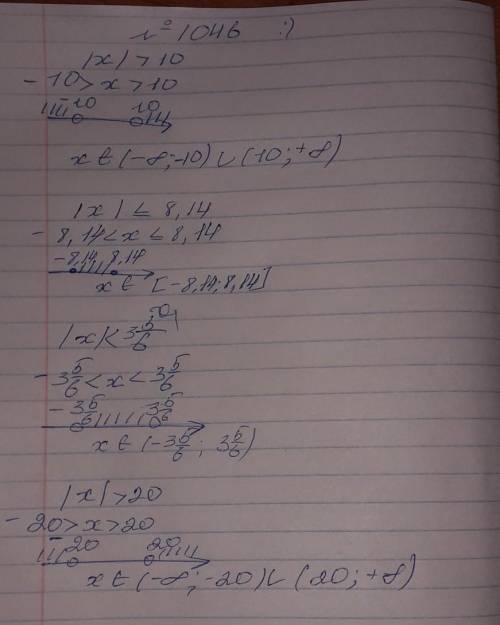 № 1046 :)
|x| > 10
- 10 > x > 10
-10 10
x ∈ (-∞; -10) ∪ (10; +∞)
|x| ≤ 8,14
- 8,14 < x ≤ 8,14
-8,14 8,14
x ∈ [-8,14; 8,14]
|x| < 3 5/6
- 3 5/6 < x < 3 5/6
- 3 5/6 3 5/6
x ∈ (-3 5/6 ; 3 5/6)
|x| > 20
- 20 > x > 20
-20 20
x ∈ (-∞; -20) ∪ (20; +∞)